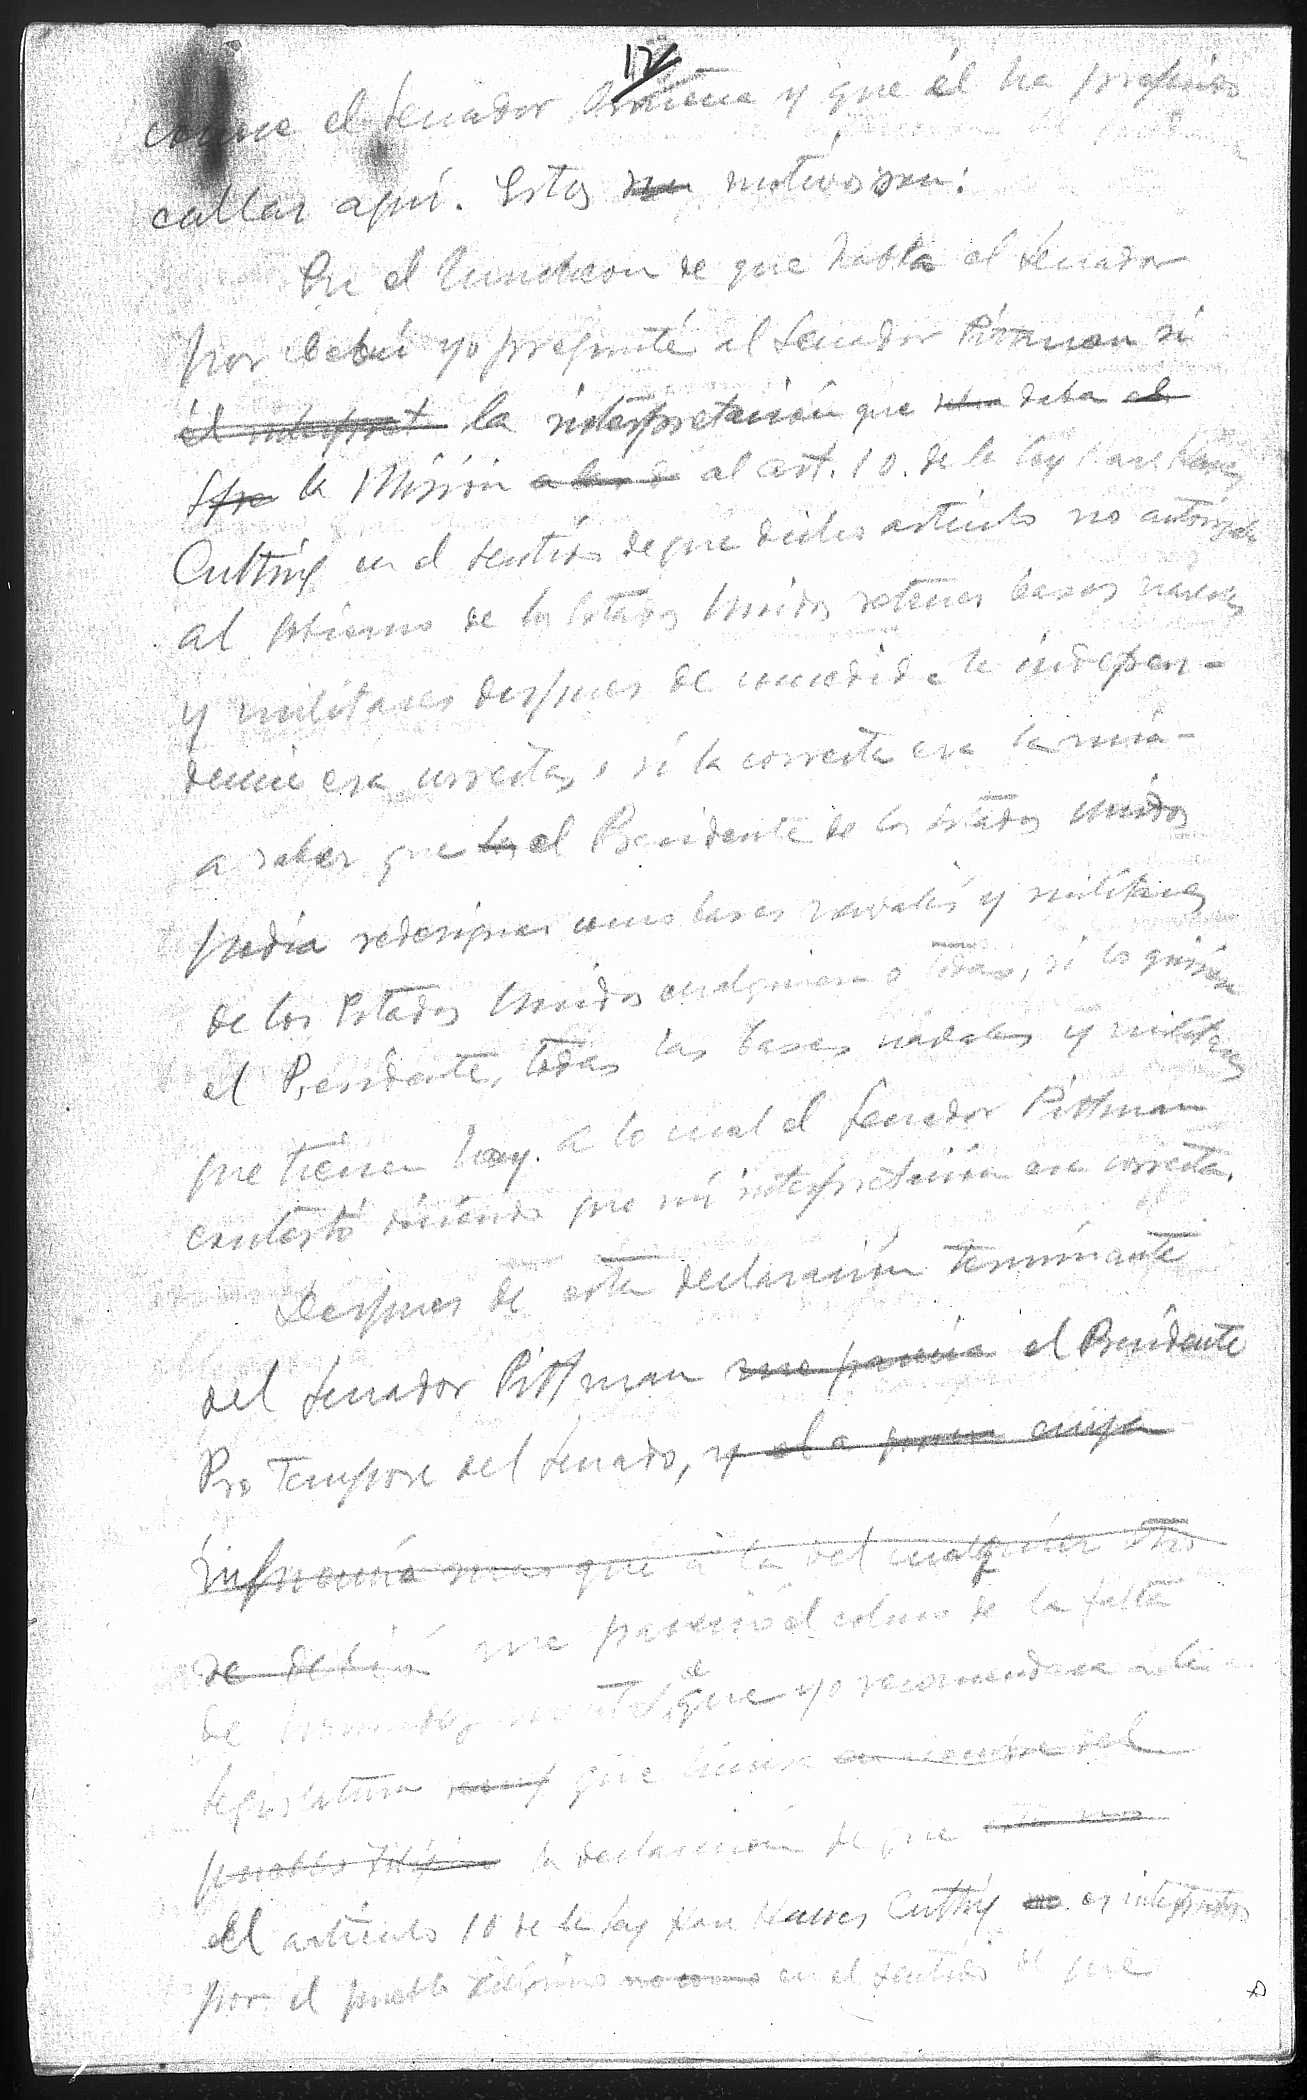 12
conoce el Senador Osmeña y que él ha preferido
callar aquí. Estos son motivos son:
En el luncheon de que habla el Senador
por Cebú yo pregunté al Senador Pittman si
él interpret la interpretación que daba
la Misión al art. 10. de la ley Hare Hawes
Cutting en el sentido de que dicho artículo no autorizaba
al gobierno de los Estados Unidos retener bases navales
y militares despues de concedida la indepen-
dencia era correcta, o si la correcta era la mia-
a saber que los el Presidente de los Estados Unidos
podia redesignar como bases navales y militares
de los Estados Unidos cualquiera o todas, si lo quisiera
el Presidente, todas las bases navales y militares
que tienen hoy. A lo cual el Senador Pittman
contestó diciendo que mi interpretación era correcta.
Despues de esta declaración terminante
del Senador Pittman me parecia el Presidente
Pro Tempore del Senado, y el a quien
que a la del cualquier otro
se debia me pareció el colmo de la falta
de de que yo recomendara a la
Legislatura que hiciera
pueblo filipino la declaración de que
el artículo 10 de la ley Hare Hawes Cutting no es interpretado
por el pueblo filipino no como en el sentido de que